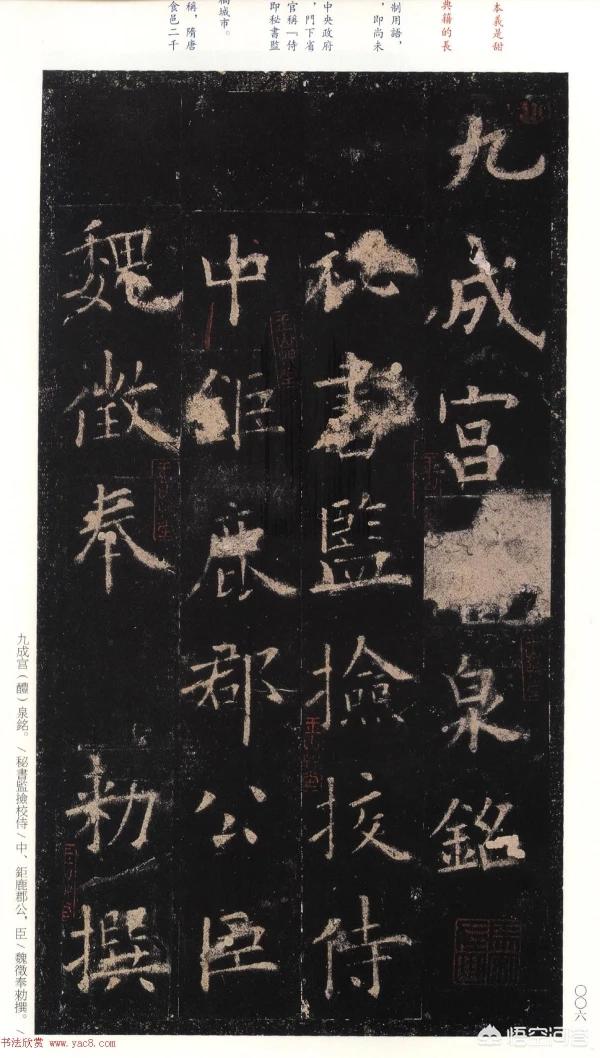 本義是甜
典籍的長
制用語，
，即尚未
中央政府
，門下省
官稱「侍
即秘書監
城市。
稱，隋唐
食邑二千
九成宮泉銘
祕書監撿挍侍
中鉅鹿郡公臣
魏徵奉 勅撰
九成宮（醴）泉銘。\秘書監撿校侍\中、鉅鹿郡公，臣\魏徵奉勅撰。\
〇〇六
书法欣赏 www.yac8.com
悟空问答